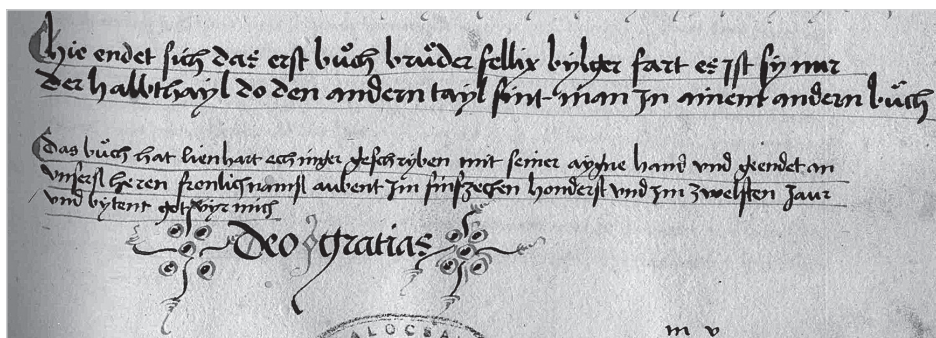 hie endet sich das erst bůch brůder fellix bylger fart es ist sy nur
der halbthayl do den andern tayl fint man in ainem andern bůch
das bůch hat lienhart echinger geschryben mit seiner aygne hand vnd geendet an
vnsersl heren fronlichnamsl aubent im finfzechen honderst vnd im zwelften Jaur
vnd bytent got vyr mich
deo gratias
ALOCSA
m v